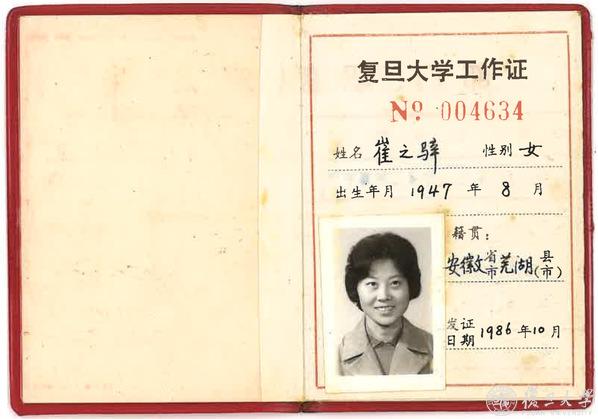 复旦大学工作证
No 004634
姓名 崔之骍 性别 女
出生年月 1947 年 8 月
籍贯:
安徽 省市 芜湖 县(市)
发证日期 1986 年 10 月
复旦大学